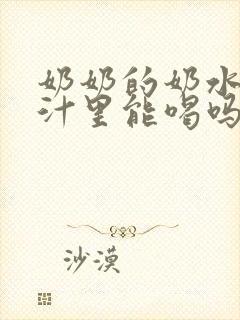 奶奶的奶水
汁里能喝吗
沙漠